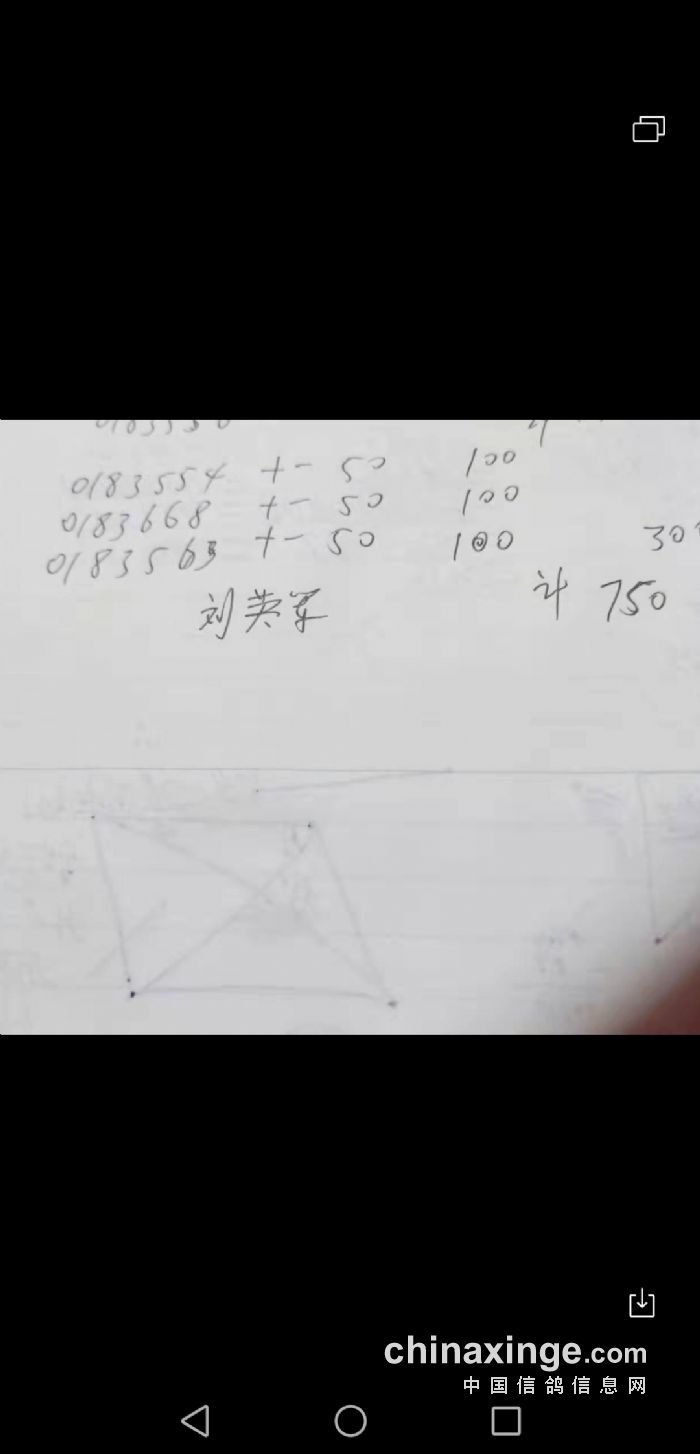 0183554 +- 50 100
0183668 +- 50 100
0183563 +- 50 100 30
刘英军 计 750
chinaxinge.com
中国信鸽信息网